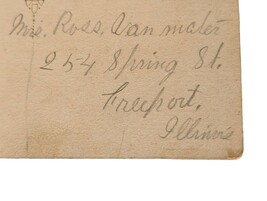 Mrs. Ross. Van mater
254 Spring St.
Freeport.
Illinois